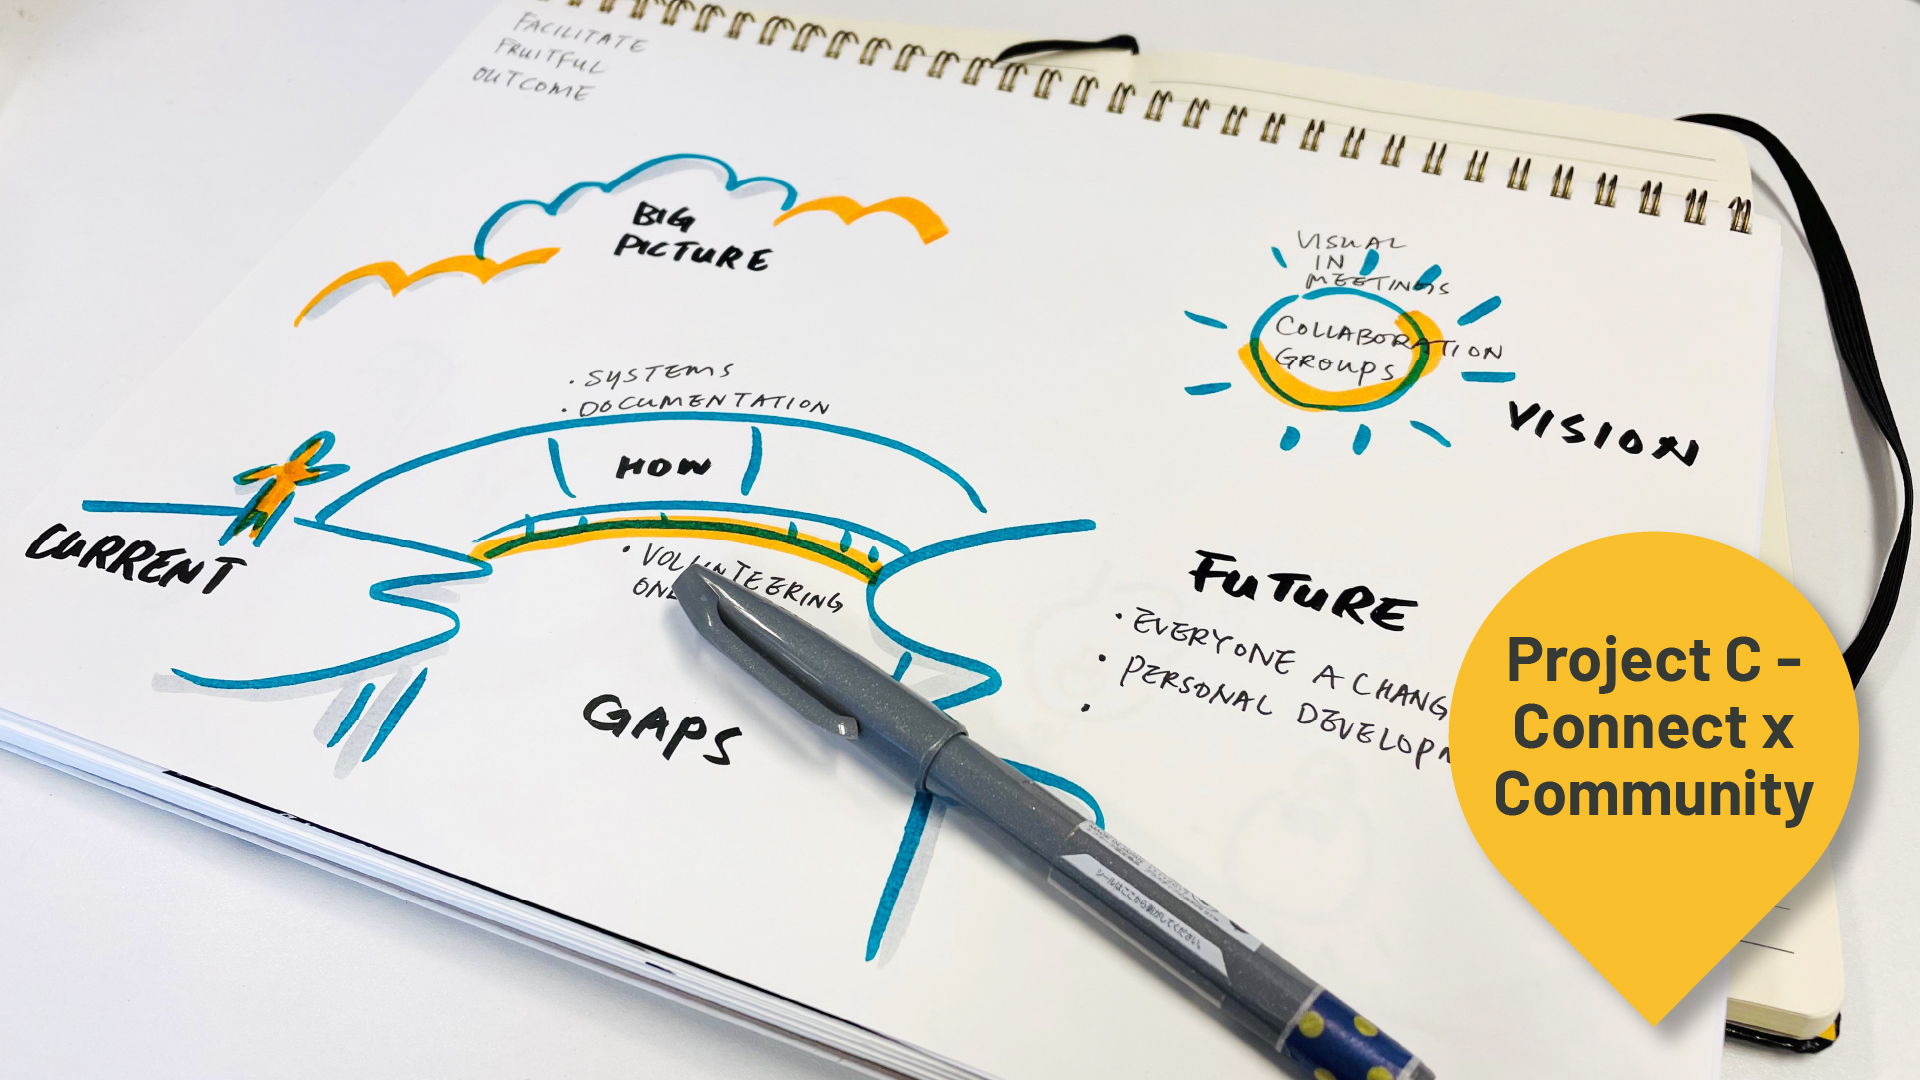 FACILITATE
FRUITFUL
OUTCOME
BIG
PICTURE
VISUAL
IN
MEETINGS
COLLABORATION
GROUPS
VISION
• SYSTEMS
• DOCUMENTATION
HOW
CURRENT
• VOLUNTEERING
GAPS
FUTURE
• EVERYONE A CHANG
• PERSONAL DEVELOPM
•
Project C -
Connect x
Community
シールはここから剥がしてください。